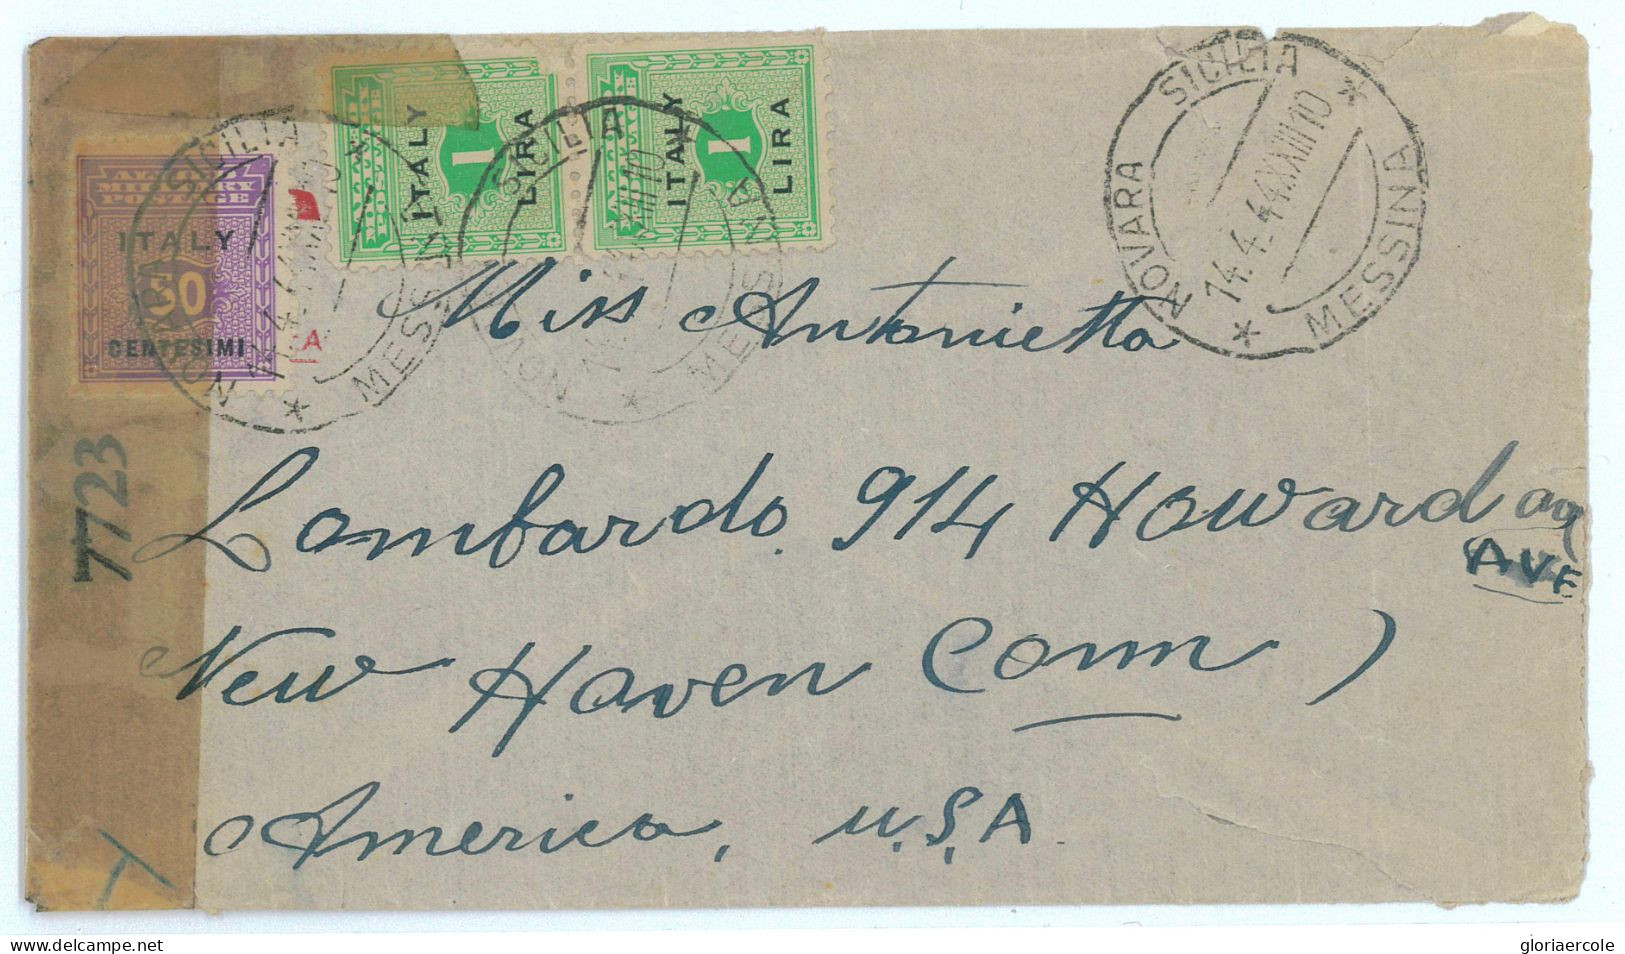 ALLIED MILITARY
POSTAGE
ITALY
50
CENTESIMI
ITALY
1
LIRA
ITALY
1
LIRA
NOVARA SICILIA * MESSINA *
14.4.44XXIII10
7723
Miss Antonietta
Lombardo. 914 Howard
AVE
New Haven Conn)
America, U.S.A.
delcampe.net
gloriaercole